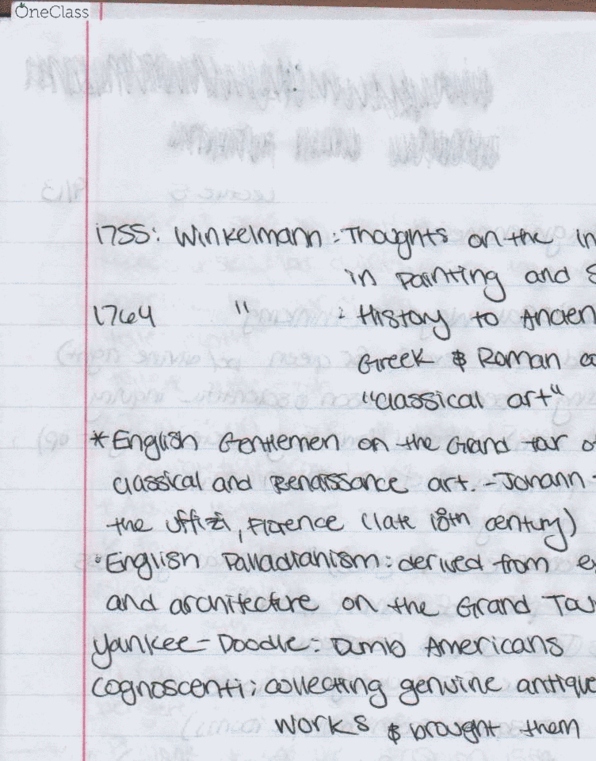 OneClass
1755: Winkelmann: Thoughts on the
in painting and
1764 " : History to
Greek & Roman
"classical art"
*English Gentlemen on the Grand tour
classical and Renaissance art. - Johann
the uffizi, Florence (late 18th century)
•English Palladianism: derived from
and architecture on the Grand
Yankee-Doodle: Dumb Americans
cognoscenti: collecting genuine
works & brought them